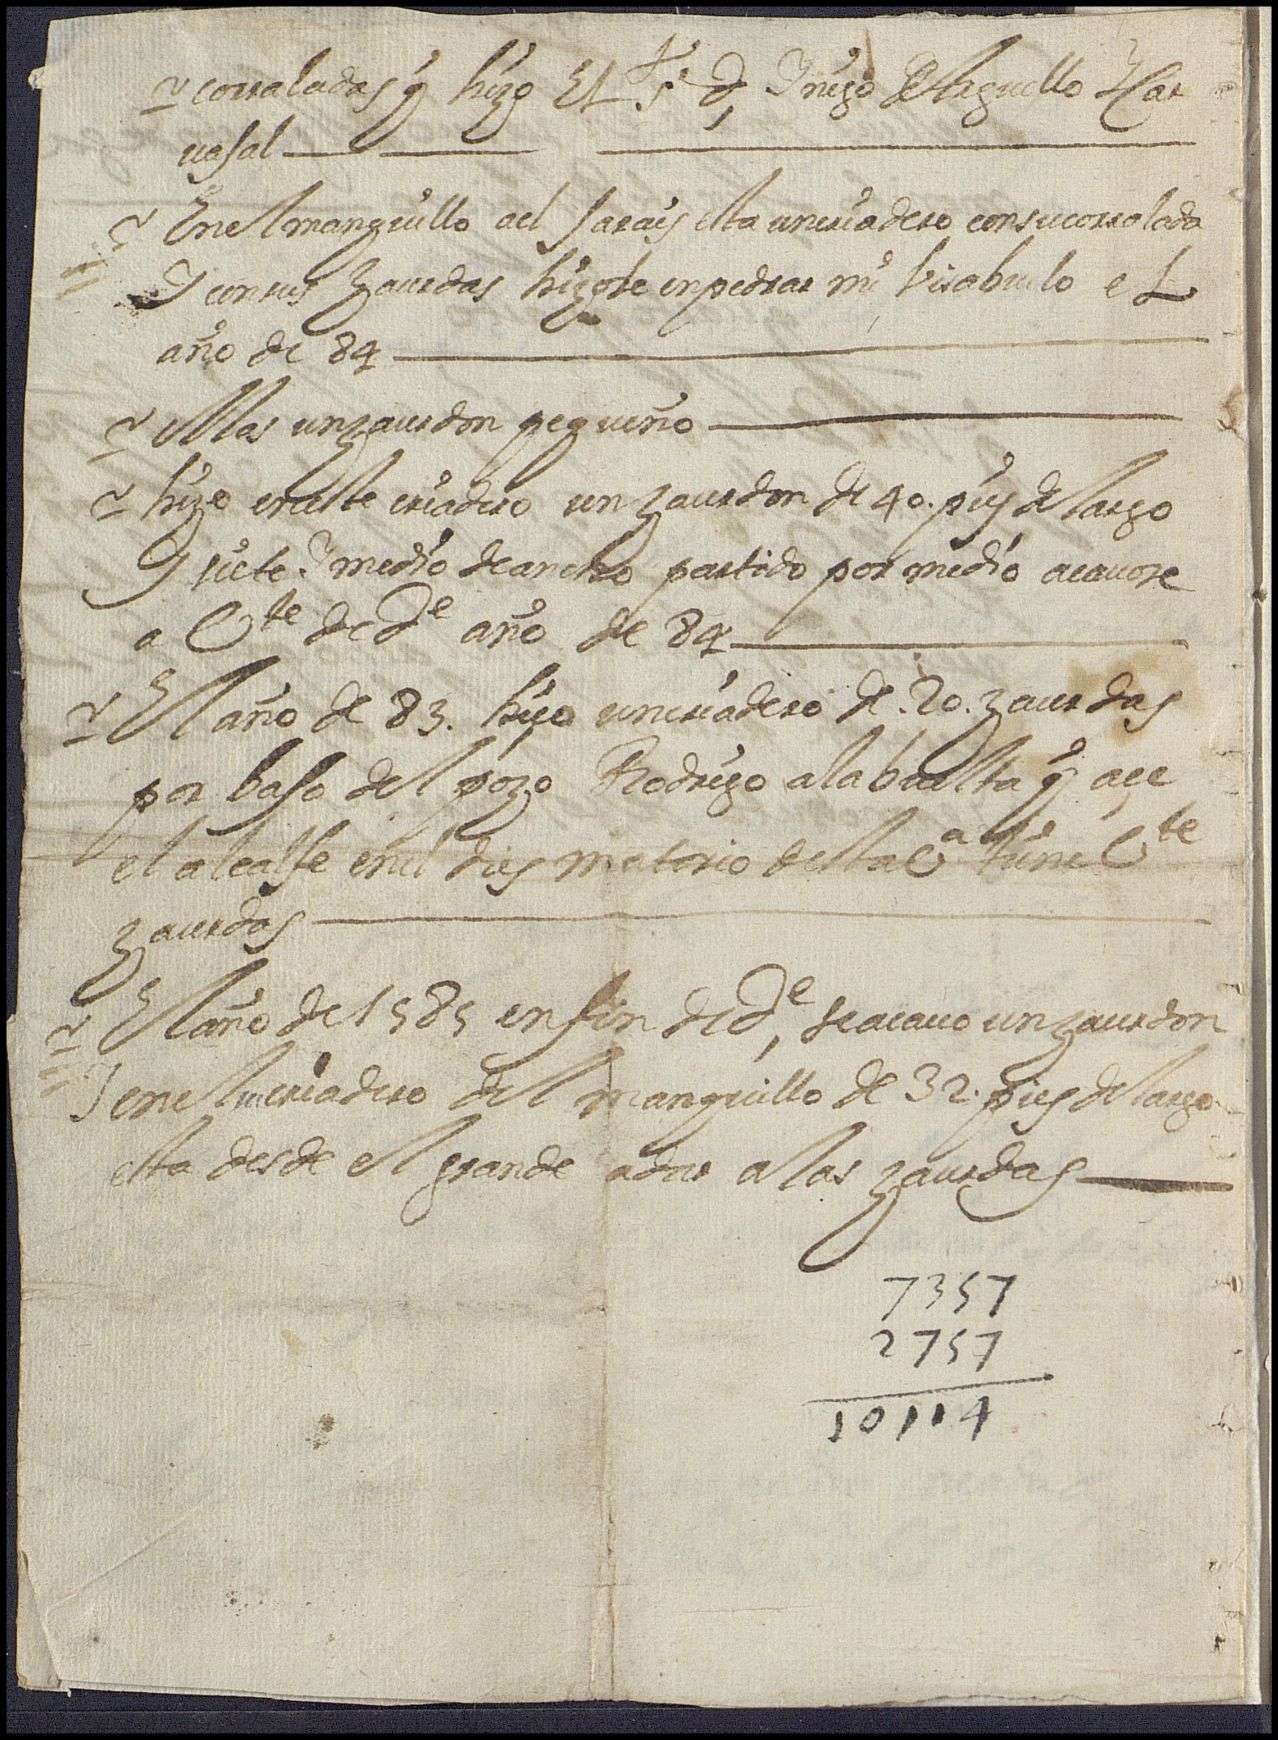 corraladas y hizo El Sr d, Yñigo de Arguello Y Car
uasal
En el manguillo del sarais esta un criadero con su corralada
Y con sus zaurdas hizole enpedrar mi bisabuelo el
año de 84
Mas un zaurdon pequeño
hizo en este criadero un zaurdon de 40. pies de largo
Y siete Y medio de ancho partido por medio acauose
a Vte de De año de 84
El año de 83. hizo un criadero de .20. zaurdas
por baso del pozo Rodrigo a la buelta q açe
el alcalfe en el diesmatorio desta Va tiene Vte
zaurdas
El año de 1585 en fin de De, se acauo un zaurdon
Y en el criadero del manguillo de 32. pies de largo
esta desde el grande a dar a las zaurdas
7357
2757
10114